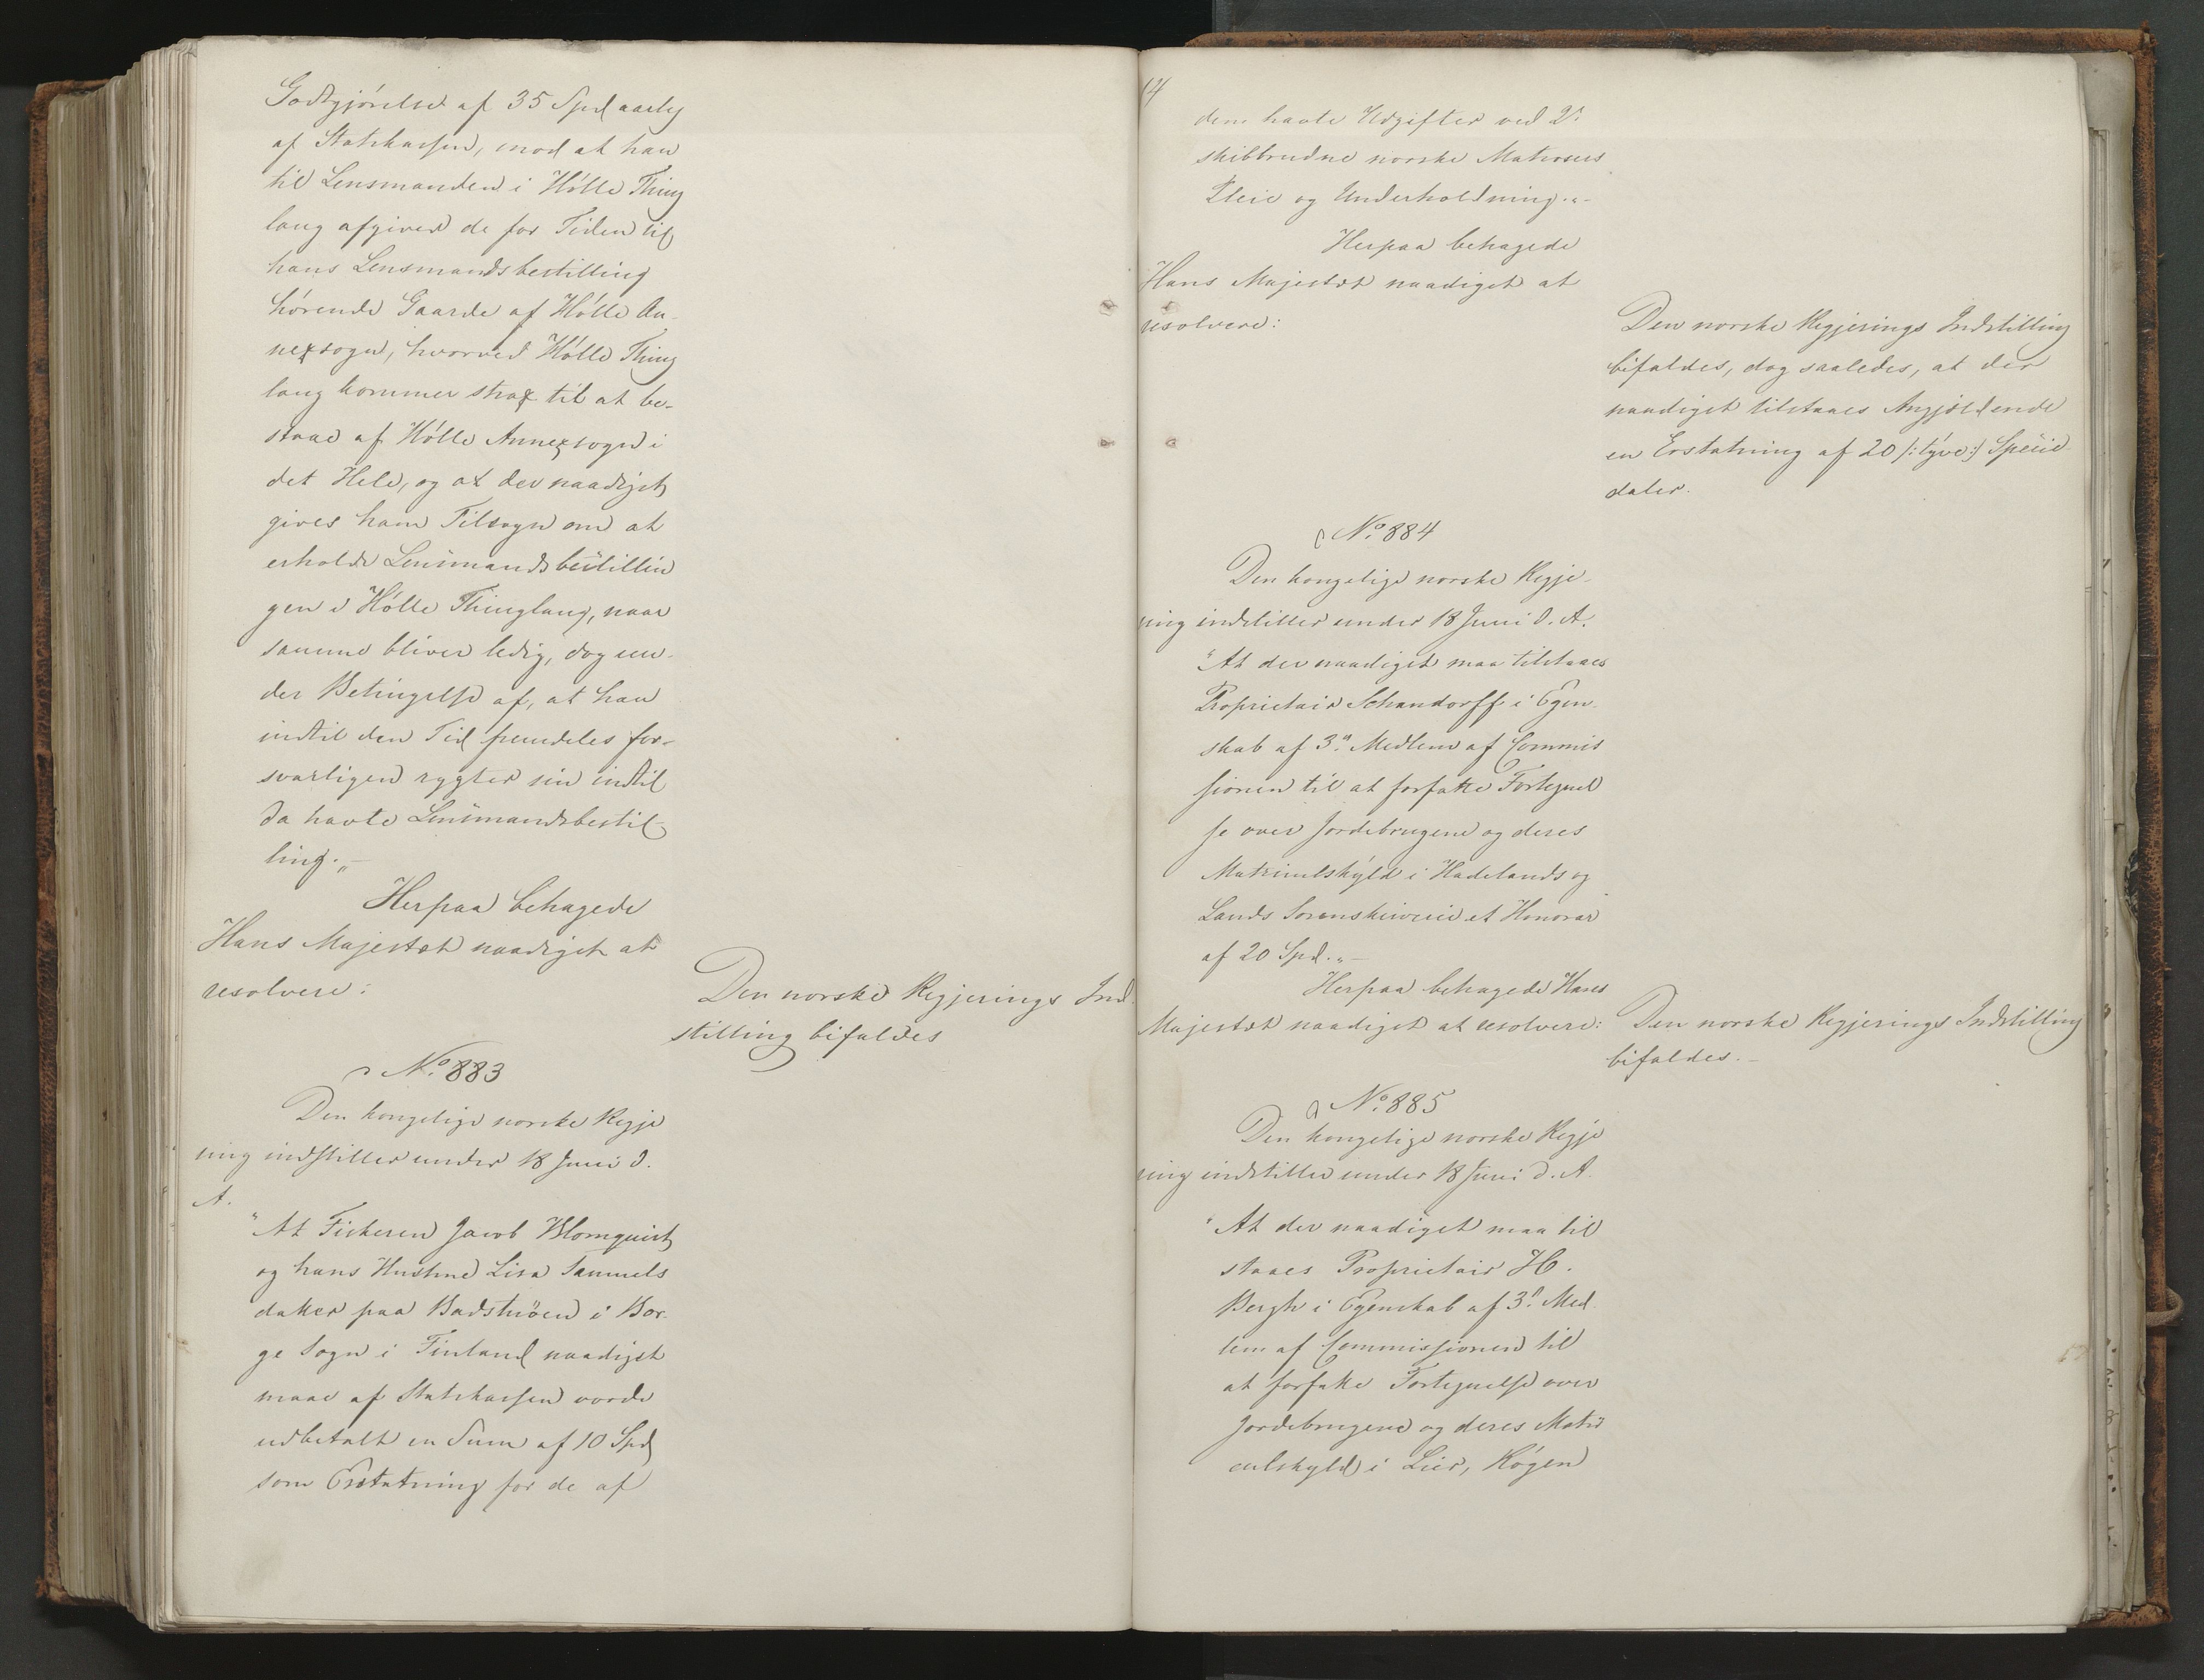 Godtgjörelse af 35 Spd aarlig
af Statskassen, mod at han
til Lensmanden i Hölle Thing
laug afgiver de for Tiden til
hans Lensmandsbestilling
hörende Gaarde af Hölle An-
nexsogn, hvorved Hölle Thing
laug kommer strax til at be-
staae af Hölle Annexsogn i
det Hele, og at der naadigst
gives ham Tilsagn om at
erholde Lensmandsbestillin
gen i Hölle Thinglaug, naar
samme bliver ledig, dog un-
der Betingelse af, at han
indtil den Tid fremdeles for-
svarligen rygter sin indtil
da havte Lensmandsbestil-
ling."-
Herpaa behagede
Hans Majestæt naadigst at
resolvere:
Den norske Regjerings Ind-
stilling bifaldes
No. 883
Den kongelige norske Regje
ring indstiller under 18 Juni d.
A.
"At Fiskeren Jacob Blomquist
og hans Hustrue Lisa Samuels
datter paa Badstuöen i Bor-
ge Sogn i Finland naadigst
maae af Statskassen vorde
udbetalt en Sum af 10 Spd
som Erstatning for de af
14
dem havte Udgifter ved 2de
skibbrudne norske Matrosers
Pleie og Underholdning."-
Herpaa behagede
Hans Majestæt naadigst at
resolvere:
Den norske Regjerings Indstilling
bifaldes, dog saaledes, at der
naadigst tilstaaes Angjældende
en Erstatning af 20 /:tyve:/ Specie-
daler.
No. 884
Den kongelige norske Regje-
ring indstiller under 18 Juni d. A.
"At der naadigst maa tilstaaes
Proprietair Schandorff i Egen-
skab af 3die Medlem af Commis
sionen til at forfatte Fortegnel
se over Jordebrugene og deres
Matriculskyld i Hadelands og
Lands Sorenskriverie et Honorar
af 20 Spd."-
Herpaa behagede Hans
Majestæt naadigst at resolvere:
Den norske Regjerings Indstilling
bifaldes.-
No. 885
Den kongelige norske Regje
ring indstiller under 18 Juni d. A.
"At der naadigst maa til
staaes Proprietair H.
Bergh i Egenskab af 3die Med-
lem af Commissionen til
at forfatte Fortegnelse over
Jordebrugene og deres Matri
culskyld i Lier, Røgen